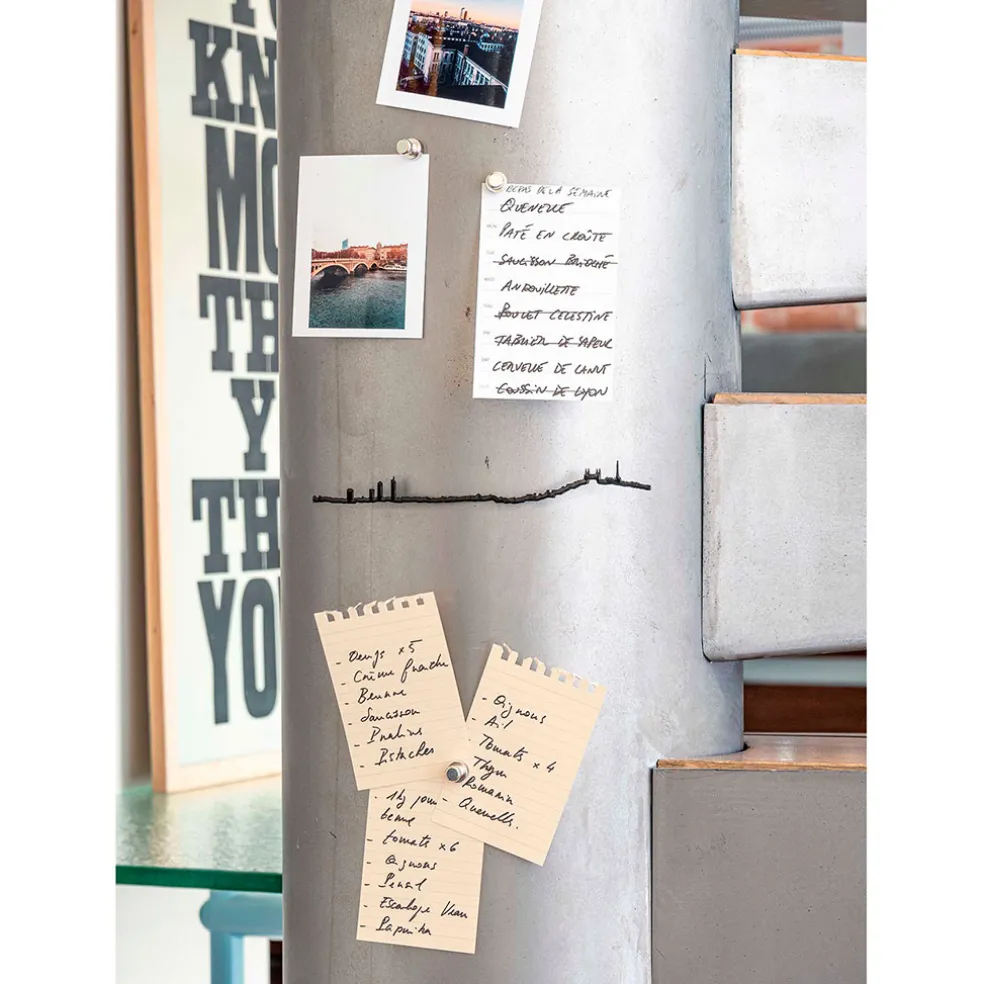 KN
MO
TH
Y
TH
YO
REPAS DE LA SEMAINE
QUENELLE
PATÉ EN CROÛTE
SAUCISSON BRIOCHÉ
ANDOUILLETTE
POULET CELESTINE
TABLIER DE SAPEUR
CERVELLE DE CANUT
COUSSIN DE LYON
- Oeufs x5
- Crème fraiche
- Beurre
- Saucisson
- Pralines
- Pistaches
- Oignons
- Ail
- Tomats x4
Thym
Romarin
- Quenelles.
- 1kg pom
- tomats x6
- Oignons
- Persil
- Escalope Veau
- Paprika